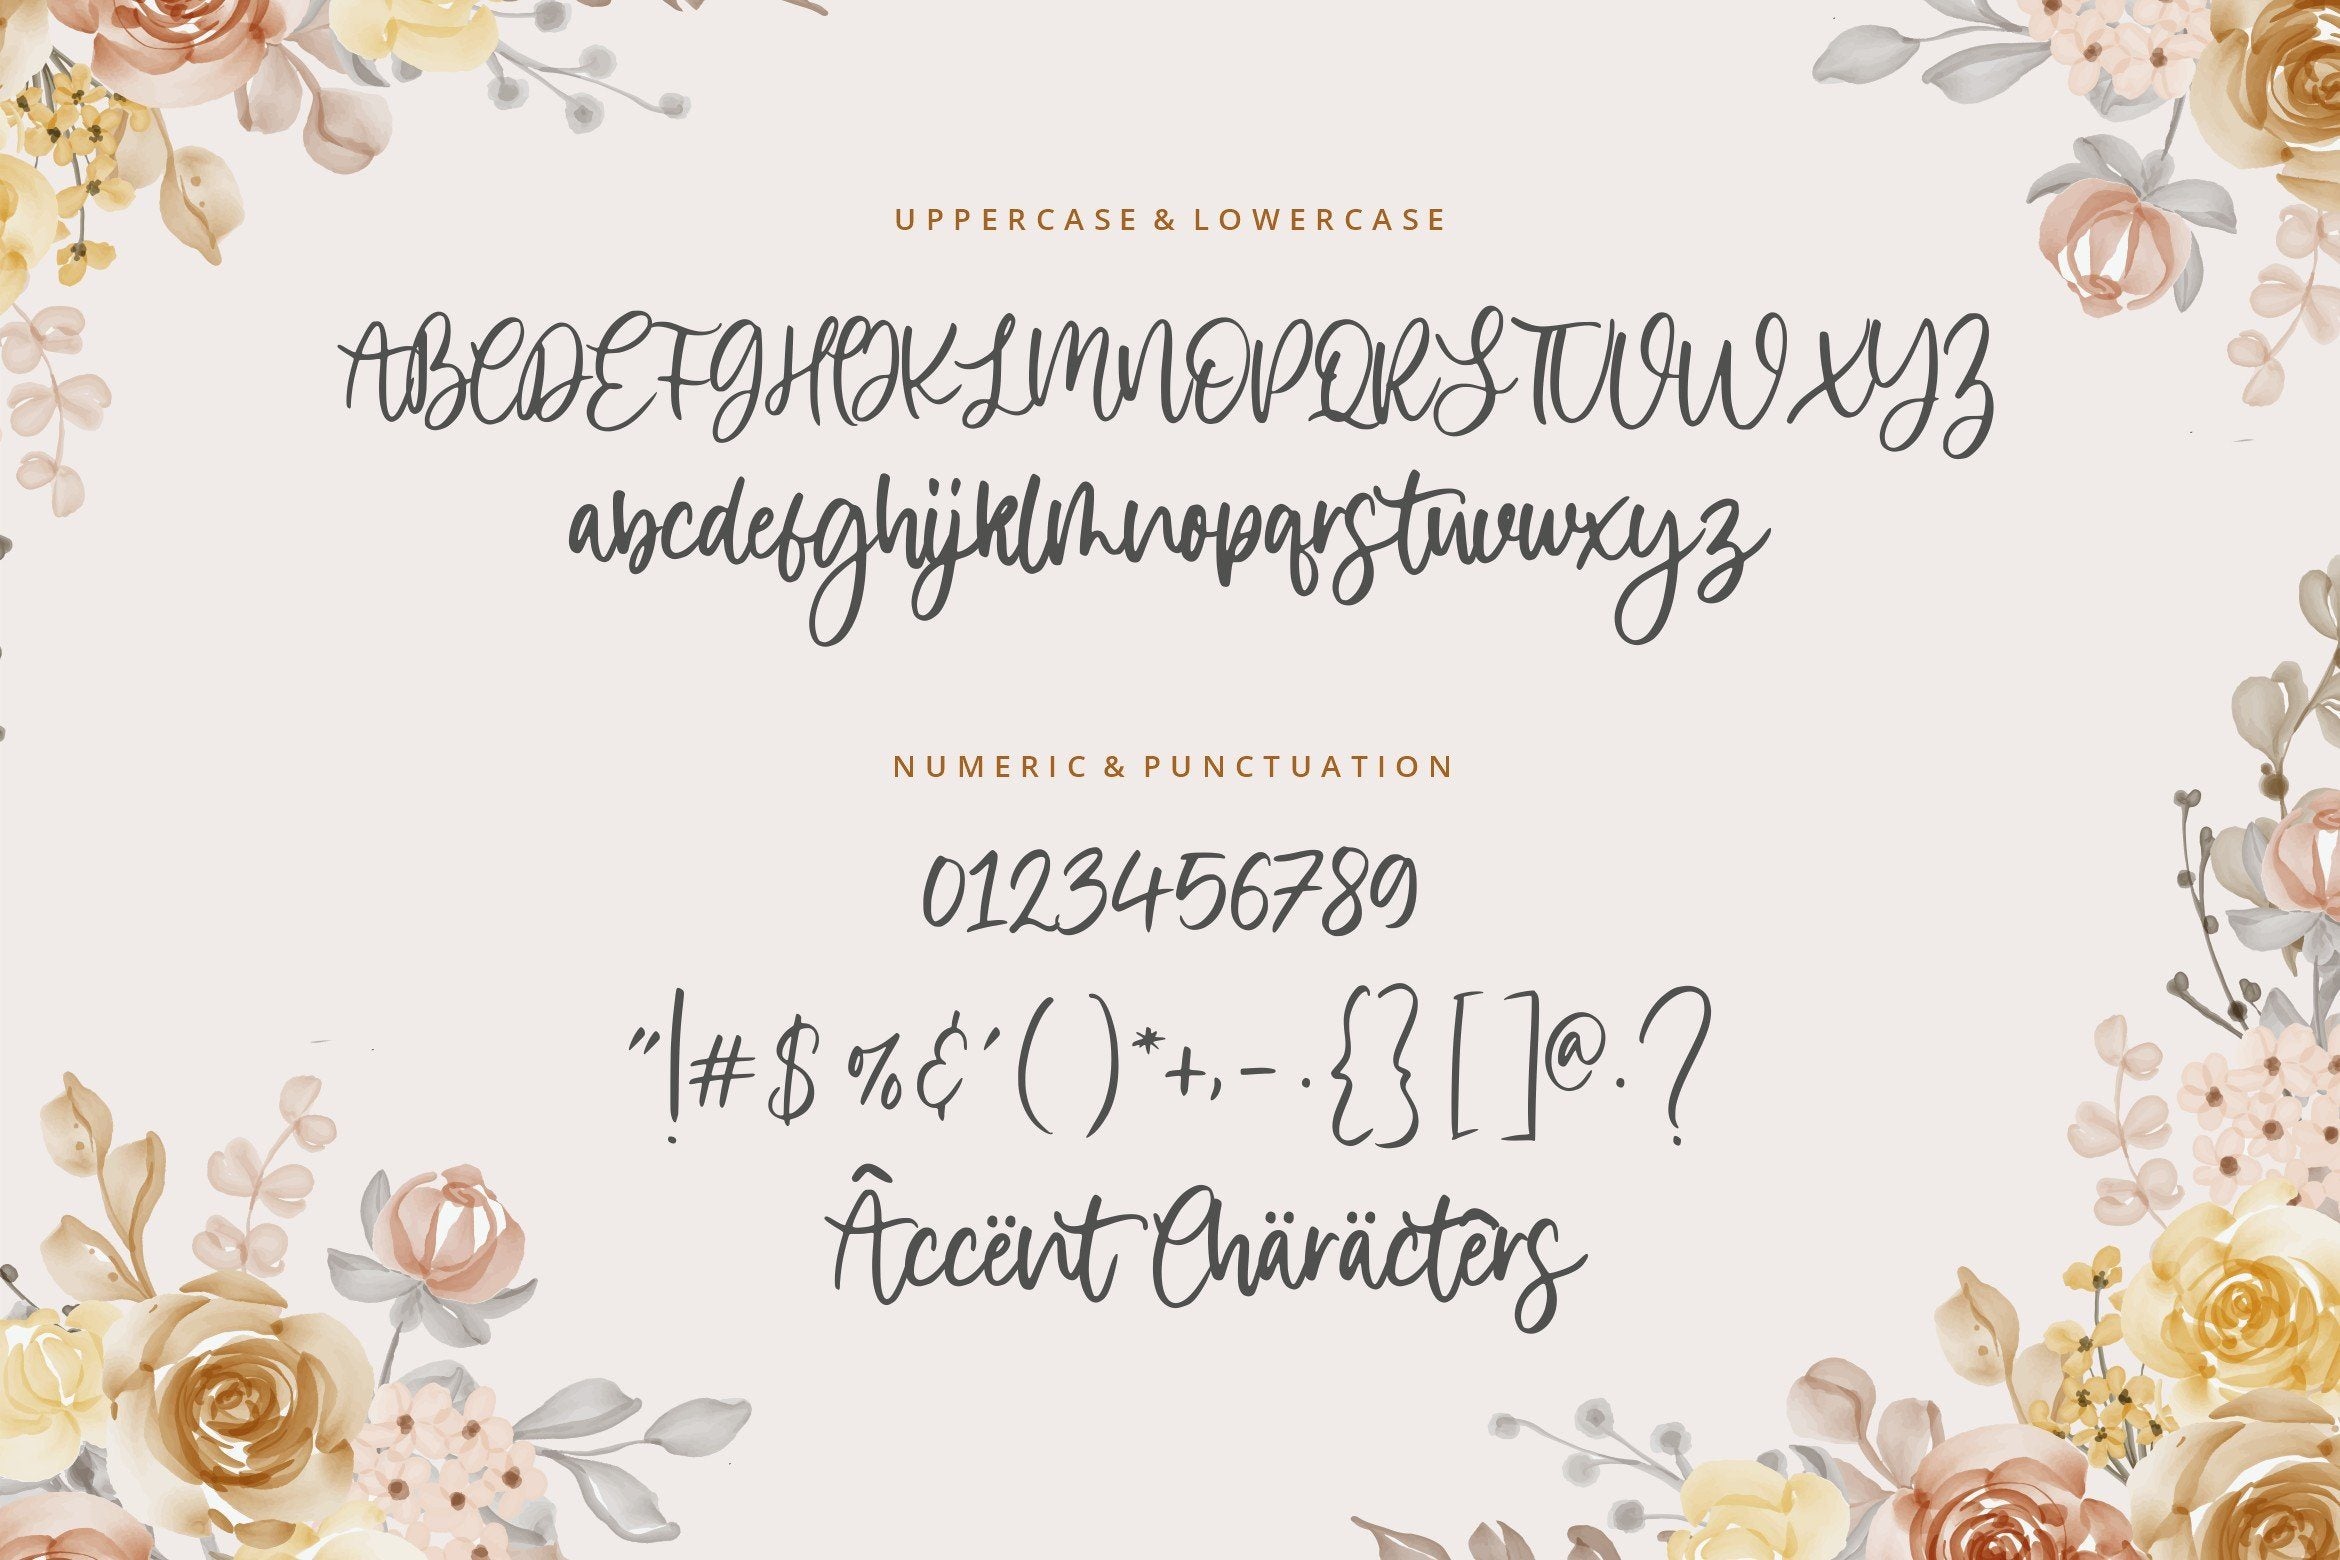 UPPERCASE & LOWERCASE
ABCDEFGHIJKLMNOPQRSTUVWXYZ
abcdefghijklmnopqrstuvwxyz
NUMERIC & PUNCTUATION
0123456789
"!#$%&'()*+,-.{}[]@.?
Âccënt Chäräctêrs